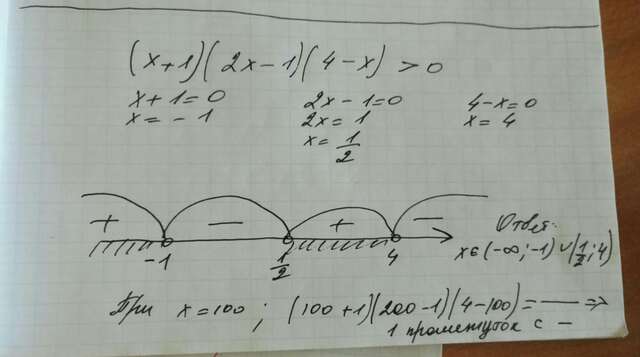 (x+1)(2x-1)(4-x) > 0
x+1=0 2x-1=0 4-x=0
x=-1 2x=1 x=4
x=1/2
+ - + -
-1 1/2 4
Ответ:
x∈(-∞;-1)∪(1/2;4)
При x=100; (100+1)(200-1)(4-100)= — =>
1 промежуток с —